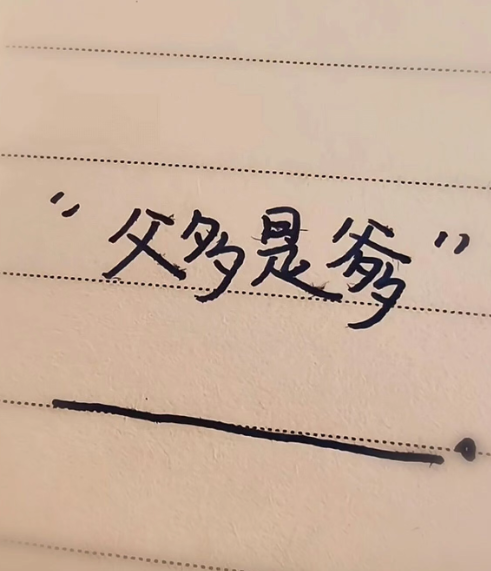 “父多是爹”